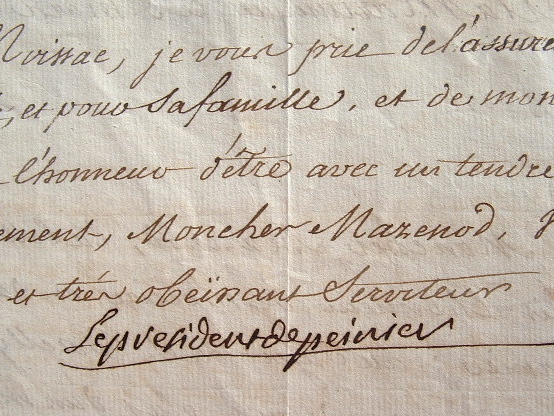 Noissac, je vous prie de l'assurer
, et pour sa famille, et de mon
l'honneur d'être avec un tendre
ement, Moncher Mazenod,
et très obeissant Serviteur
Le president de peinier